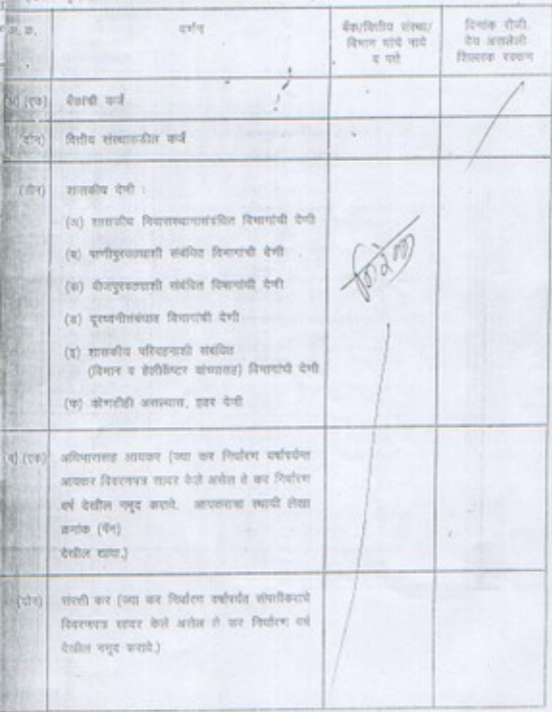 अ. क्र.
वर्णन
बँक/वित्तीय संस्था/
विभाग यांचे नावे
व पत्ते
दिनांक रोजी
देय असलेली
शिल्लक रक्कम
(एक) बँकांची कर्जे
(दोन) वित्तीय संस्थाकडील कर्जे
(तीन) शासकीय देणी :
(अ) शासकीय निवासस्थानासंबंधित विभागांची देणी
(ब) पाणीपुरवठ्याशी संबंधित विभागांची देणी
(क) वीजपुरवठ्याशी संबंधित विभागांची देणी
(ड) दूरध्वनीसंबंधात विभागांची देणी
(इ) शासकीय परिवहनाशी संबंधित
(विमान व हेलीकॅप्टर यांच्यासह) विभागांची देणी
(फ) कोणतीही असल्यास, इतर देणी
ब) (एक) अधिभारासह आयकर (ज्या कर निर्धारण वर्षापर्यन्त
आयकर विवरणपत्र सादर केले असेल ते कर निर्धारण
वर्ष देखील नमूद करावे. आयकराचा स्थायी लेखा
क्रमांक (पॅन)
देखील द्यावा.)
(दोन) संपत्ती कर (ज्या कर निर्धारण वर्षापर्यंत संपत्तीकराचे
विवरणपत्र सादर केले असेल ते कर निर्धारण वर्ष
देखील नमूद करावे.)